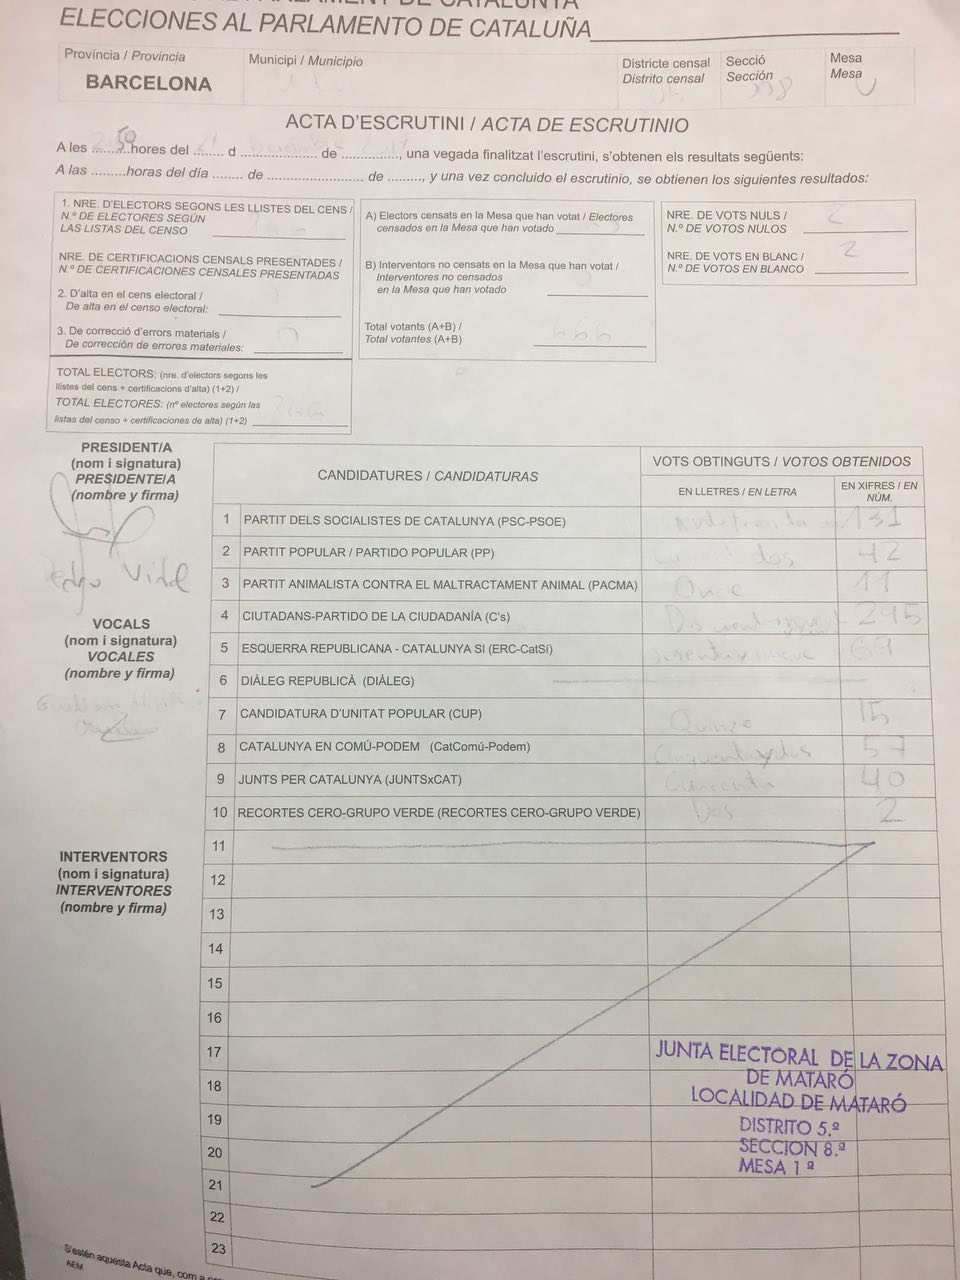 ELECCIONES AL PARLAMENTO DE CATALUÑA
Província / Provincia
BARCELONA
Municipi / Municipio
Districte censal
Distrito censal
Secció
Sección
Mesa
Mesa
ACTA D'ESCRUTINI / ACTA DE ESCRUTINIO
A les ........hores del ........ d .................... de ..............., una vegada finalitzat l'escrutini, s'obtenen els resultats següents:
A las .........horas del día ........ de ......................... de ........., y una vez concluido el escrutinio, se obtienen los siguientes resultados:
1. NRE. D'ELECTORS SEGONS LES LLISTES DEL CENS /
N.º DE ELECTORES SEGÚN
LAS LISTAS DEL CENSO
NRE. DE CERTIFICACIONS CENSALS PRESENTADES /
N.º DE CERTIFICACIONES CENSALES PRESENTADAS
2. D'alta en el cens electoral /
De alta en el censo electoral:
3. De correcció d'errors materials /
De corrección de errores materiales: 0
TOTAL ELECTORS: (nre. d'electors segons les
llistes del cens + certificacions d'alta) (1+2) /
TOTAL ELECTORES: (nº electores según las
listas del censo + certificaciones de alta) (1+2)
A) Electors censats en la Mesa que han votat / Electores
censados en la Mesa que han votado
B) Interventors no censats en la Mesa que han votat /
Interventores no censados
en la Mesa que han votado
Total votants (A+B) /
Total votantes (A+B) 666
NRE. DE VOTS NULS /
N.º DE VOTOS NULOS 2
NRE. DE VOTS EN BLANC /
N.º DE VOTOS EN BLANCO 2
PRESIDENT/A
(nom i signatura)
PRESIDENTE/A
(nombre y firma)
Vidal
VOCALS
(nom i signatura)
VOCALES
(nombre y firma)
INTERVENTORS
(nom i signatura)
INTERVENTORES
(nombre y firma)
CANDIDATURES / CANDIDATURAS
VOTS OBTINGUTS / VOTOS OBTENIDOS
EN LLETRES / EN LETRA
EN XIFRES / EN
NÚM.
1 PARTIT DELS SOCIALISTES DE CATALUNYA (PSC-PSOE) 131
2 PARTIT POPULAR / PARTIDO POPULAR (PP) dos 42
3 PARTIT ANIMALISTA CONTRA EL MALTRACTAMENT ANIMAL (PACMA) Once 11
4 CIUTADANS-PARTIDO DE LA CIUDADANÍA (C's) 295
5 ESQUERRA REPUBLICANA - CATALUNYA SI (ERC-CatSí) 69
6 DIÀLEG REPUBLICÀ (DIÀLEG)
7 CANDIDATURA D'UNITAT POPULAR (CUP) Quinze 15
8 CATALUNYA EN COMÚ-PODEM (CatComú-Podem) 57
9 JUNTS PER CATALUNYA (JUNTSxCAT) 40
10 RECORTES CERO-GRUPO VERDE (RECORTES CERO-GRUPO VERDE) Dos 2
11
12
13
14
15
16
17
18
19
20
21
22
23
JUNTA ELECTORAL DE LA ZONA
DE MATARÓ
LOCALIDAD DE MATARÓ
DISTRITO 5.º
SECCION 8.ª
MESA 1ª
S'estén aquesta Acta que, com a